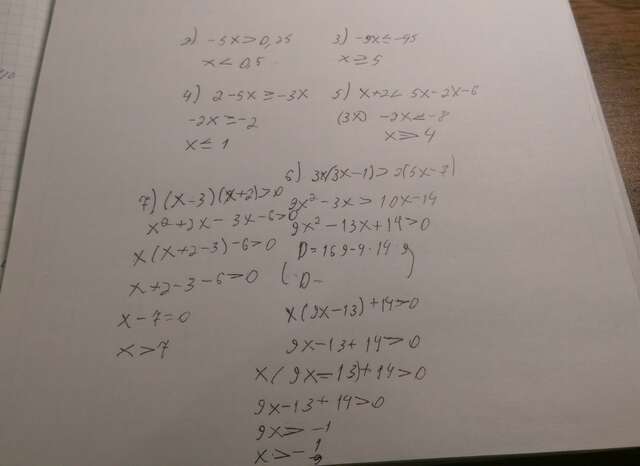 2) -5x>0,25
x<0,5
3) -9x≤-45
x≥5
4) 2-5x≥-3x
-2x≥-2
x≤1
5) x+2<5x-2x-6
(3x) -2x<-8
x>4
6) 3x(3x-1)>2(5x-7)
9x²-3x>10x-14
9x²-13x+14>0
D=169-4·14·9
( D- )
x(9x-13)+14>0
9x-13+14>0
x(9x-13)+14>0
9x-13+14>0
9x>-1
x>-1/9
7) (x-3)(x+2)>0
x²+2x-3x-6>0
x(x+2-3)-6>0
x+2-3-6>0
x-7=0
x>7